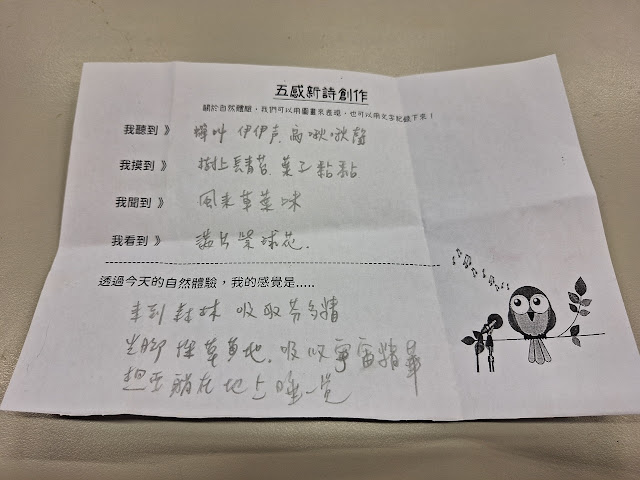 五感新詩創作
關於自然體驗，我們可以用圖畫來表現，也可以用文字記錄下來！
我聽到 》 蟬叫 伊伊声 鳥啾啾聲
我摸到 》 樹上青苔 葉子黏黏
我聞到 》 風來草葉味
我看到 》 滿片紫球花.
透過今天的自然體驗，我的感覺是.....
來到森林 吸取芬多精
光腳 踩草地. 吸收宇宙精華
想要躺在地上睡一覺